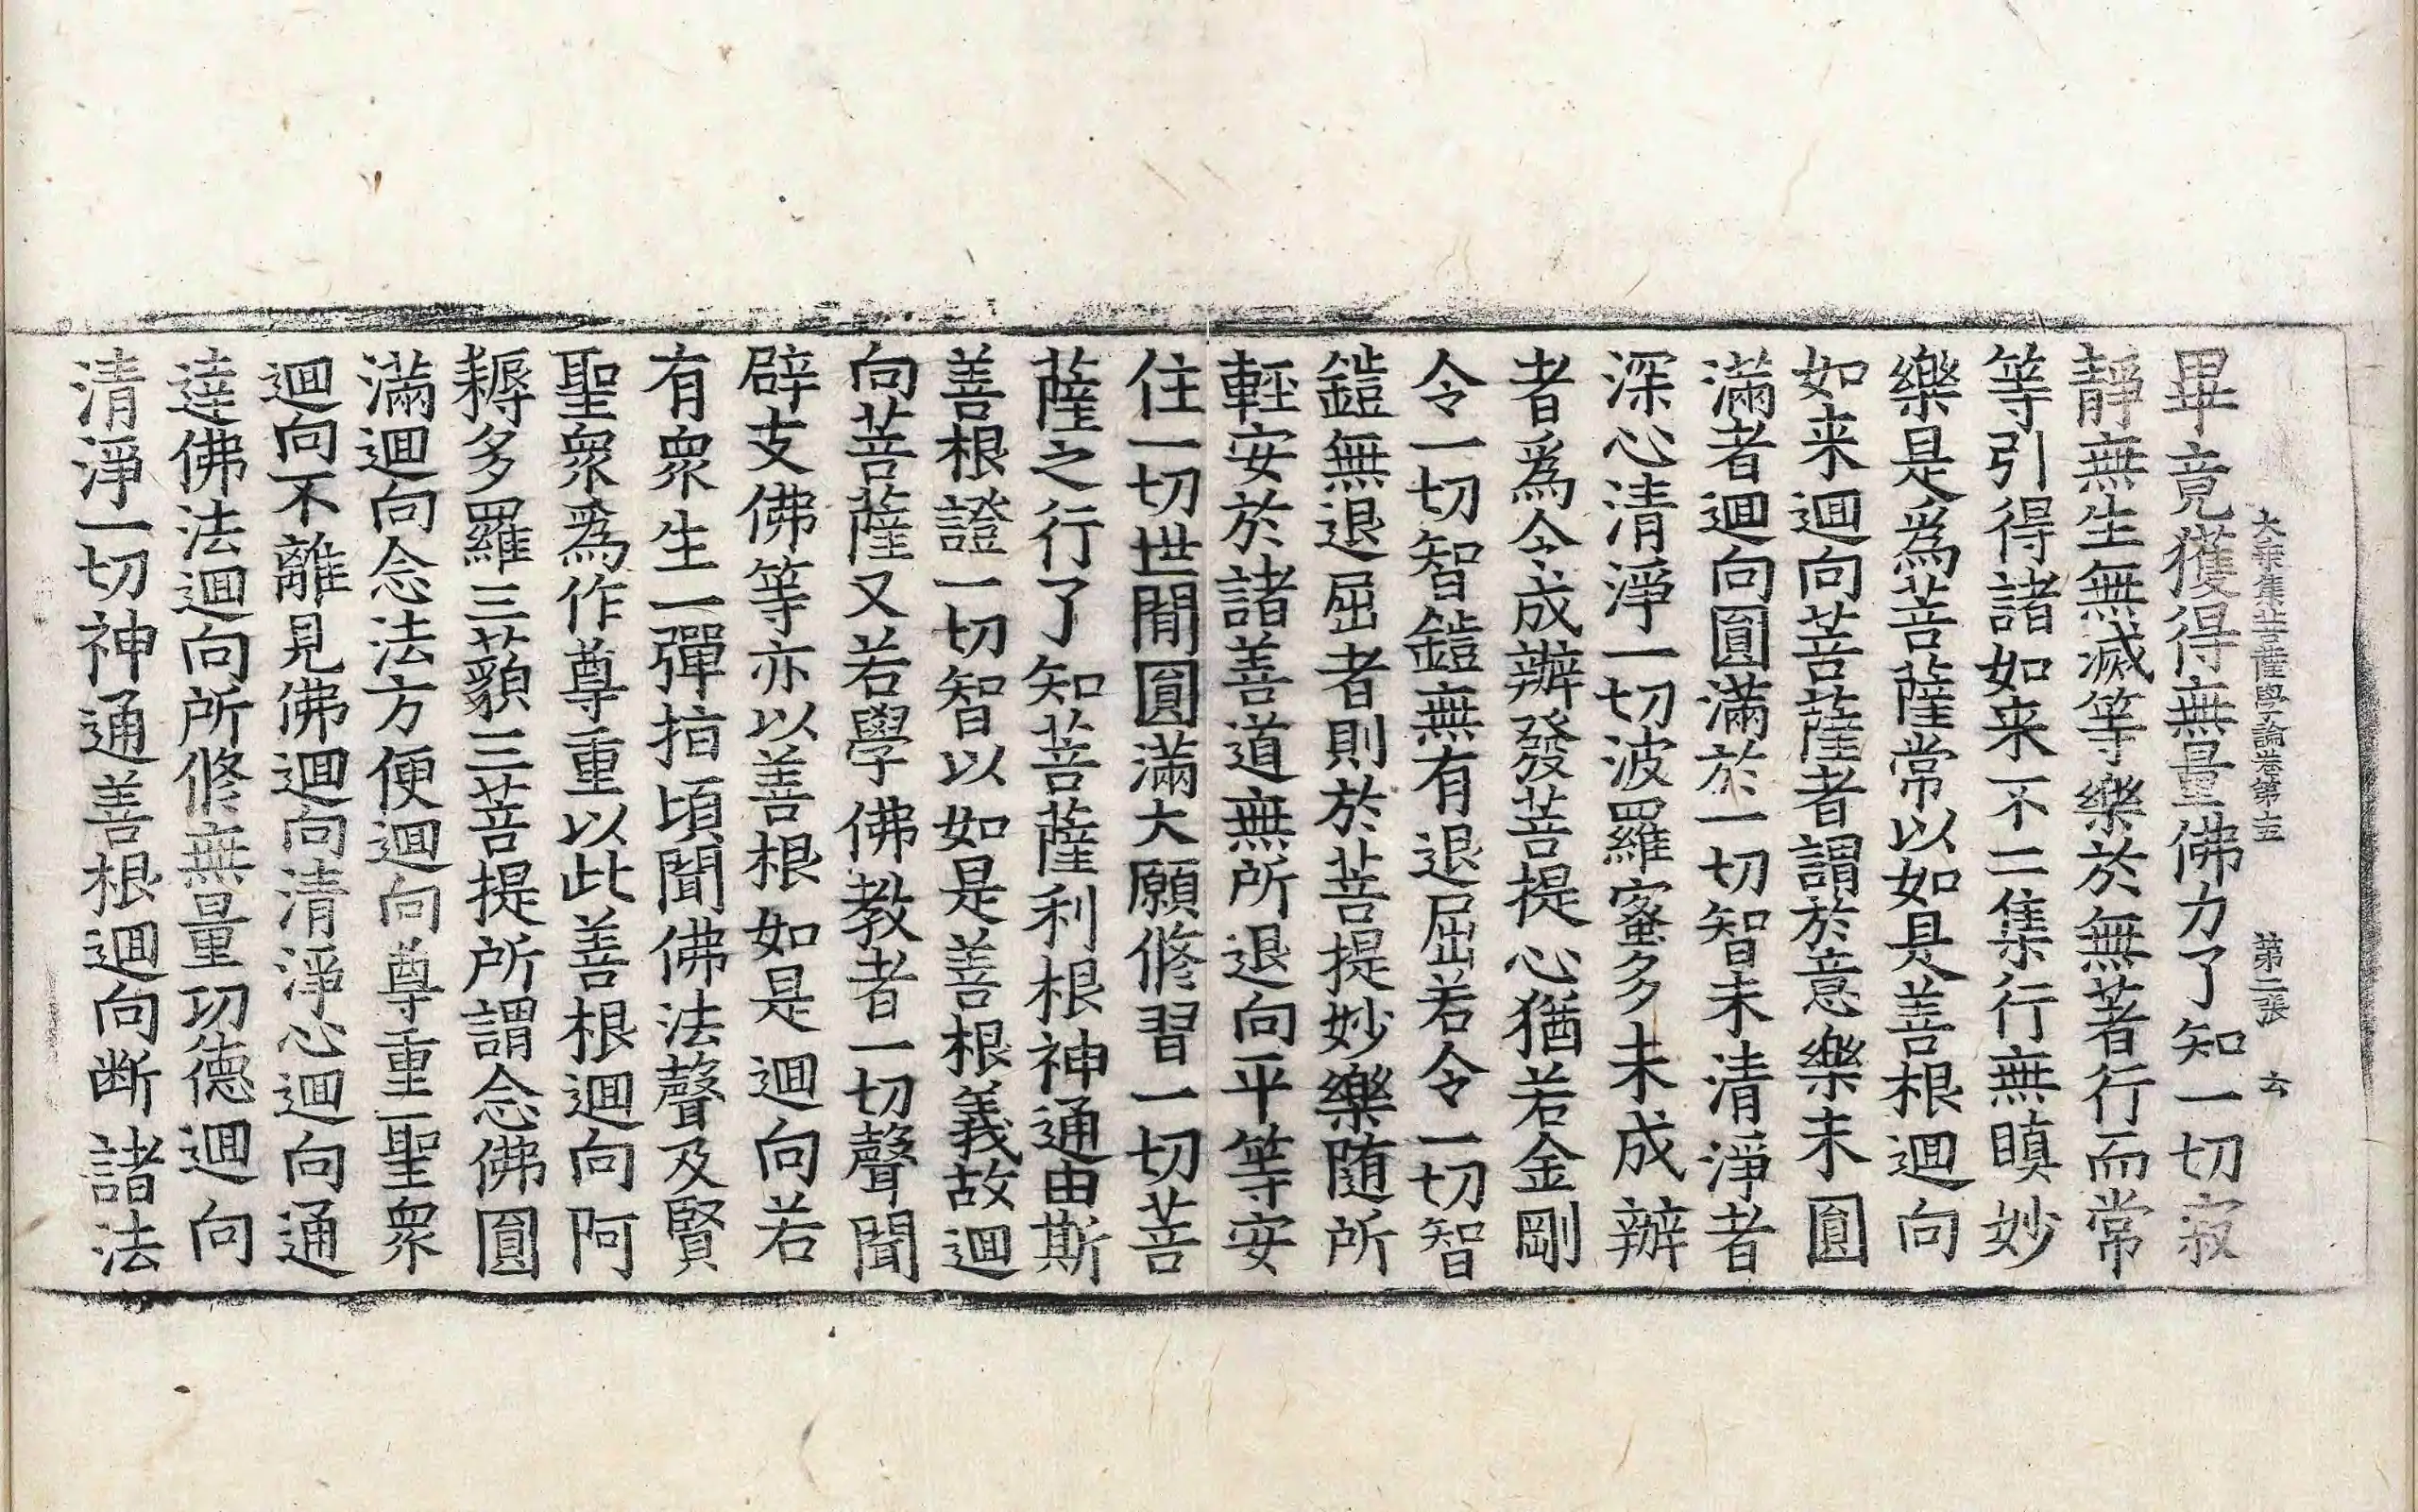 大乗集菩薩學論卷第十五　第二張　玄
畢竟獲得無量佛力了知一切寂
靜無生無滅等樂於無著行而常
等引得諸如来不二集行無瞋妙
樂是爲菩薩常以如是善根迴向
如来迴向菩薩者謂於意樂未圓
滿者迴向圓滿於一切智未清淨者
深心清淨一切波羅蜜多未成辦
者爲令成辦發菩提心猶若金剛
令一切智鎧無有退屈若令一切智
鎧無退屈者則於菩提妙樂随所
輕安於諸善道無所退向平等安
住一切世閒圓滿大願修習一切菩
薩之行了知菩薩利根神通由斯
善根證一切智以如是善根義故迴
向菩薩又若學佛教者一切聲聞
辟支佛等亦以善根如是迴向若
有衆生一彈指頃聞佛法聲及賢
聖衆爲作尊重以此善根迴向阿
耨多羅三藐三菩提所謂念佛圓
滿迴向念法方便迴向尊重聖衆
迴向不離見佛迴向清淨心迴向通
達佛法迴向所修無量功德迴向
清淨一切神通善根迴向断諸法